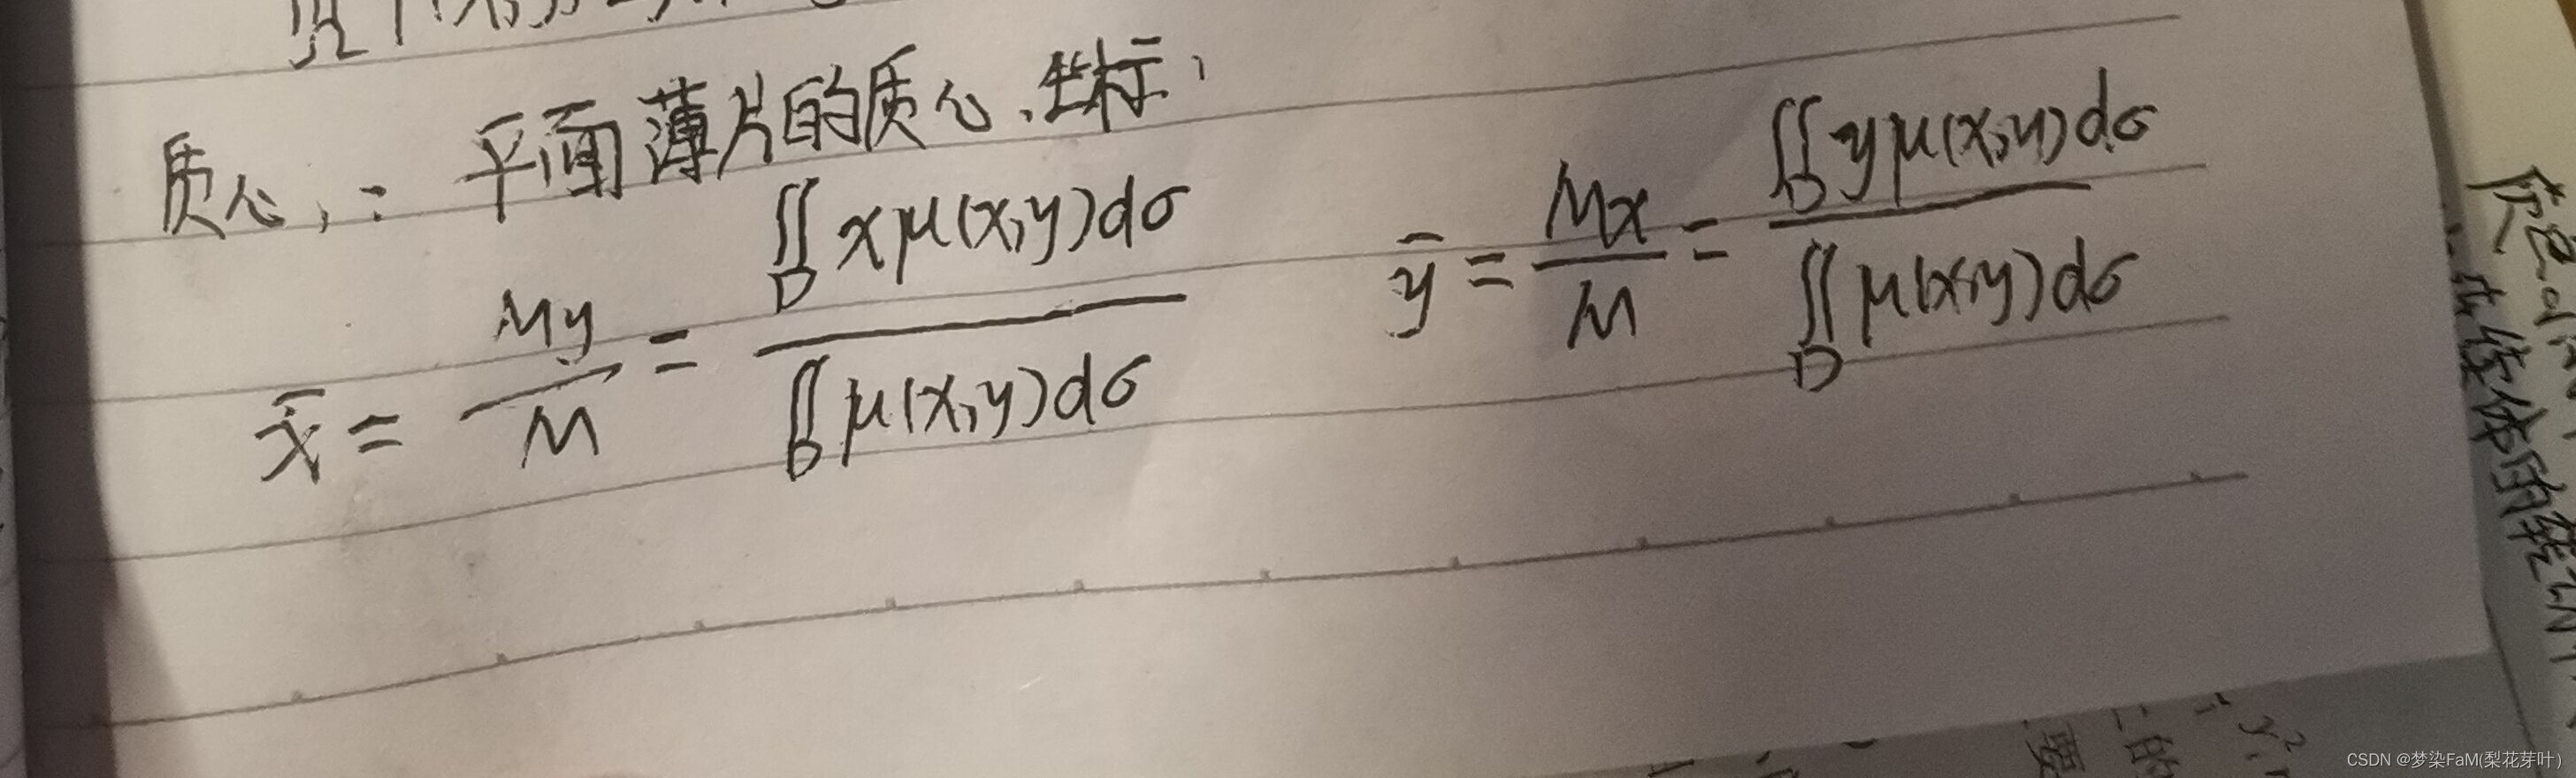 质心: 平面薄片的质心坐标,
x̄ = My/M = ∬D xμ(x,y)dσ / ∬D μ(x,y)dσ
ȳ = Mx/M = ∬D yμ(x,y)dσ / ∬D μ(x,y)dσ
CSDN @梦染FaM(梨花芽叶)